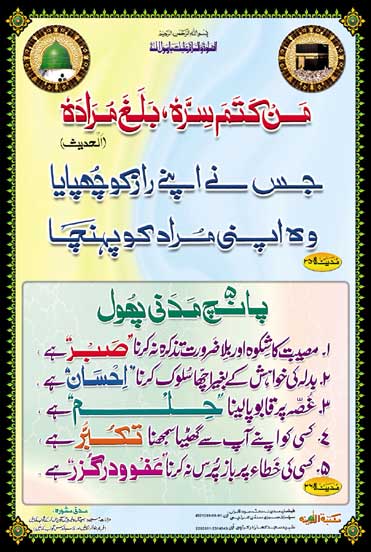 بِسْمِ اللهِ الرَّحْمٰنِ الرَّحِيْمِ
مَنْ كَتَمَ سِرَّهٗ، بَلَغَ مُرَادَهٗ
(الحدیث)
جس نے اپنے راز کو چھپایا
وہ اپنی مراد کو پہنچا
پانچ مدنی پھول
۱. مصیبت کا شکوہ اور بلا ضرورت تذکرہ نہ کرنا "صبر" ہے،
۲. بدلہ کی خواہش کے بغیر اچھا سلوک کرنا "احسان" ہے،
۳. غصّہ پر قابو پالینا "حلم" ہے،
٤. کسی کو اپنے آپ سے گھٹیا سمجھنا تکبّر ہے،
۵. کسی کی خطاء پر باز پُرس نہ کرنا "عفو و درگزر" ہے
مکتبۃ المدینہ
مدنی مشورہ: